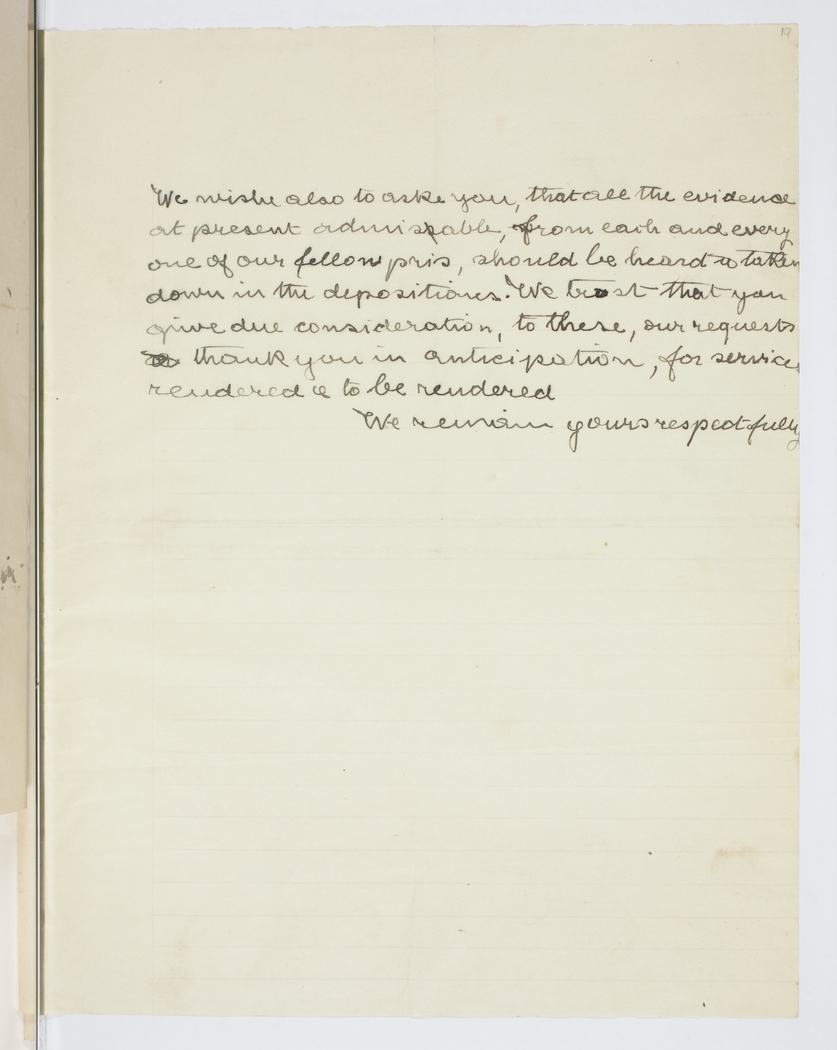 19
We wishe also to aske you, that all the evidence
at present admissable, from each and every
one of our fellow pris, should be heard & taken
down in the depositions. We trust that you
give due consideration, to these, our requests
& thank you in anticipation, for services
rendered & to be rendered
We remain yours respectfully